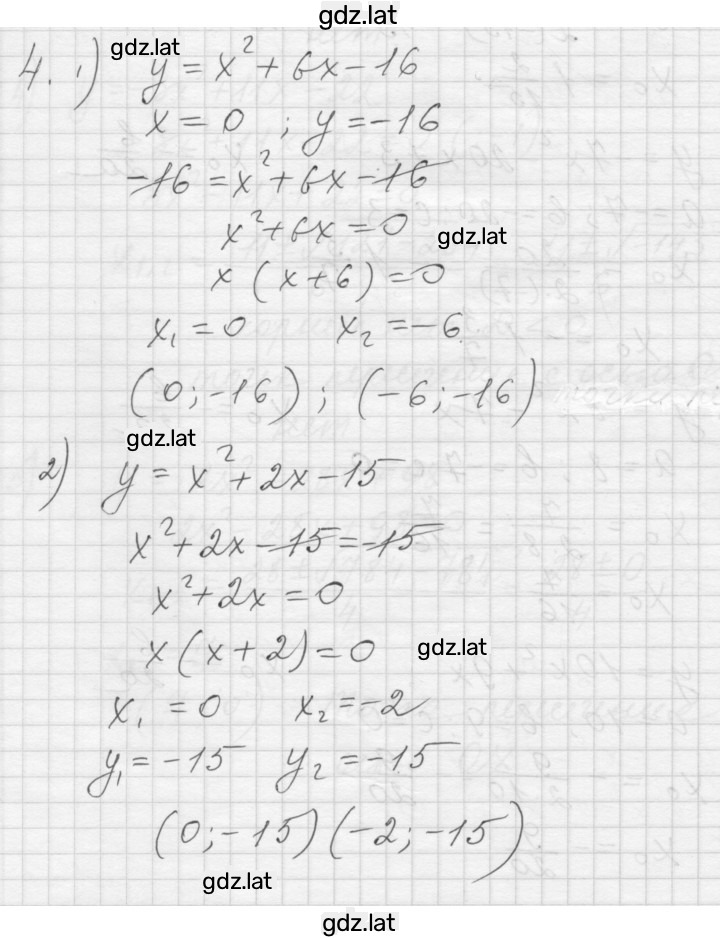 gdz.lat
4. 1) gdz.lat y = x² + 6x - 16
x = 0 ; y = -16
-16 = x² + 6x - 16
x² + 6x = 0
gdz.lat
x (x + 6) = 0
x₁ = 0 x₂ = -6
(0; -16) ; (-6; -16)
gdz.lat
2) y = x² + 2x - 15
x² + 2x - 15 = -15
x² + 2x = 0
x (x + 2) = 0 gdz.lat
x₁ = 0 x₂ = -2
y₁ = -15 y₂ = -15
(0; -15) (-2; -15)
gdz.lat
gdz.lat